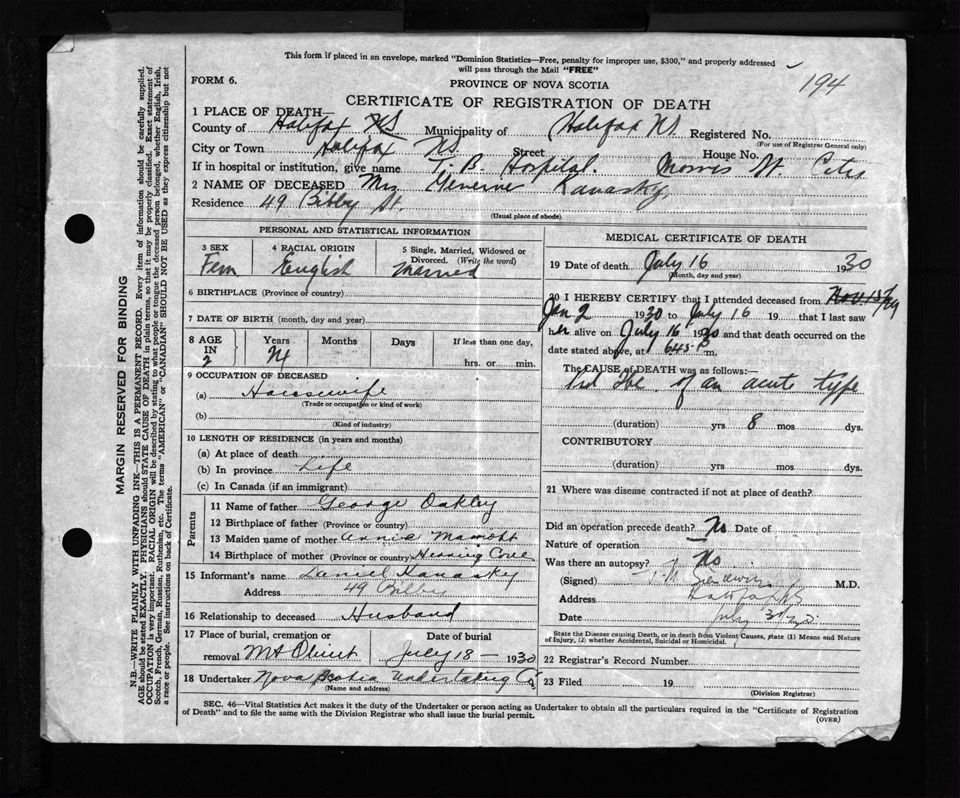 This form if placed in an envelope, marked "Dominion Statistics—Free, penalty for improper use, $300," and properly addressed
will pass through the Mail "FREE"
194
FORM 6.
PROVINCE OF NOVA SCOTIA
CERTIFICATE OF REGISTRATION OF DEATH
1 PLACE OF DEATH—
County of Halifax NS Municipality of Halifax NS. Registered No.
(For use of Registrar General only)
City or Town Halifax NS Street House No.
If in hospital or institution, give name T. B. Hospital. Morris St.
2 NAME OF DECEASED Mrs Kanasky,
Residence 49 Bibby St.
(Usual place of abode)
PERSONAL AND STATISTICAL INFORMATION
3 SEX 4 RACIAL ORIGIN 5 Single, Married, Widowed or Divorced. (Write the word)
Fem English Married
6 BIRTHPLACE (Province or country)
7 DATE OF BIRTH (month, day and year)
8 AGE IN Years Months Days If less than one day,
2 hrs. or min.
9 OCCUPATION OF DECEASED
(a) Housewife
(Trade or occupation or kind of work)
(b)
(Kind of industry)
10 LENGTH OF RESIDENCE (in years and months)
(a) At place of death
(b) In province Life
(c) In Canada (if an immigrant)
Parents
11 Name of father George Oakley
12 Birthplace of father (Province or country)
13 Maiden name of mother Annie
14 Birthplace of mother (Province or country) Herring Cove
15 Informant's name Daniel Kanasky
Address 49 Bilby
16 Relationship to deceased Husband
17 Place of burial, cremation or removal Mt Olivet
Date of burial July 18 — 1930
18 Undertaker Nova Scotia Undertaking Co
(Name and address)
MEDICAL CERTIFICATE OF DEATH
19 Date of death July 16 1930
(Month, day and year)
20 I HEREBY CERTIFY that I attended deceased from Nov. 15/29
Jan 2 1930 to July 16 19 that I last saw
her alive on July 16 1930 and that death occurred on the
date stated above, at 645 P m.
The CAUSE of DEATH was as follows:—
of an acute type
(duration) yrs 8 mos dys.
CONTRIBUTORY
(duration) yrs mos dys.
21 Where was disease contracted if not at place of death?
Did an operation precede death? No Date of
Nature of operation
Was there an autopsy? No
(Signed) M.D.
Address Halifax NS
Date July
State the Disease causing Death, or in death from Violent Causes, state (1) Means and Nature
of Injury, (2) whether Accidental, Suicidal or Homicidal.
22 Registrar's Record Number
23 Filed 19
(Division Registrar)
SEC. 46—Vital Statistics Act makes it the duty of the Undertaker or person acting as Undertaker to obtain all the particulars required in the "Certificate of Registration
of Death" and to file the same with the Division Registrar who shall issue the burial permit.
(OVER)
MARGIN RESERVED FOR BINDING
N.B.—WRITE PLAINLY WITH UNFADING INK—THIS IS A PERMANENT RECORD. Every item of information should be carefully supplied.
AGE should be stated EXACTLY. PHYSICIANS should STATE CAUSE OF DEATH in plain terms, so that it may be properly classified. Exact statement of
OCCUPATION is very important. RACIAL ORIGIN will be described by stating to what people or tongue the deceased person belonged, whether English, Irish,
Scotch, French, German, Russian, Ruthenian, etc. The terms "AMERICAN" or "CANADIAN" SHOULD NOT BE USED as they express citizenship but not
a race or people. See instructions on back of Certificate.